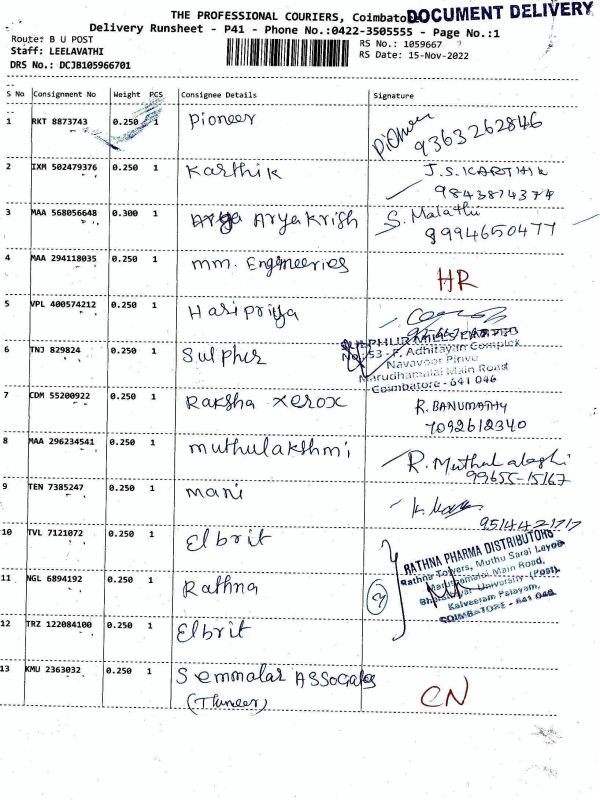 THE PROFESSIONAL COURIERS, Coimbato
DOCUMENT DELIVERY
Delivery Runsheet - P41 - Phone No.:0422-3505555 - Page No.:1
Route: B U POST
Staff: LEELAVATHI
DRS No.: DCJB105966701
RS No.: 1059667
RS Date: 15-Nov-2022
S No Consignment No Weight PCS Consignee Details Signature
1 RKT 8873743 0.250 1 Pioneer Pioneer
9363262846
2 IXM 502479376 0.250 1 Karthik J.S.KARTHIK
9843814374
3 MAA 568056648 0.300 1 Aryakrish S. Malathi
8994650477
4 MAA 294118035 0.250 1 mm. Engineeries HR
5 VPL 400574212 0.250 1 Haripriya
6 TNJ 829824 0.250 1 Sulpher SULPHUR MILLS LIMITED
No. 53 - F, Adhitayan Complex
Navavoor Pirivu
Marudhamalai Main Road
Coimbatore - 641 046
7 CDM 55200922 0.250 1 Raksha xerox R. BANUMATHY
7092612340
8 MAA 296234541 0.250 1 muthulakshmi R. Muthulakshmi
99655-15167
9 TEN 7385247 0.250 1 mani
9514421717
10 TVL 7121072 0.250 1 Elbrit
11 NGL 6894192 0.250 1 Rathna 3
RATHNA PHARMA DISTRIBUTORS
Rathna Towers, Muthu Saral Layout
Marudhamalai Main Road,
Bharathiyar University (Post),
Kalveeram Palayam,
COIMBATORE - 641 046
12 TRZ 122084100 0.250 1 Elbrit
13 KMU 2363032 0.250 1 Semmalar ASSocates CN